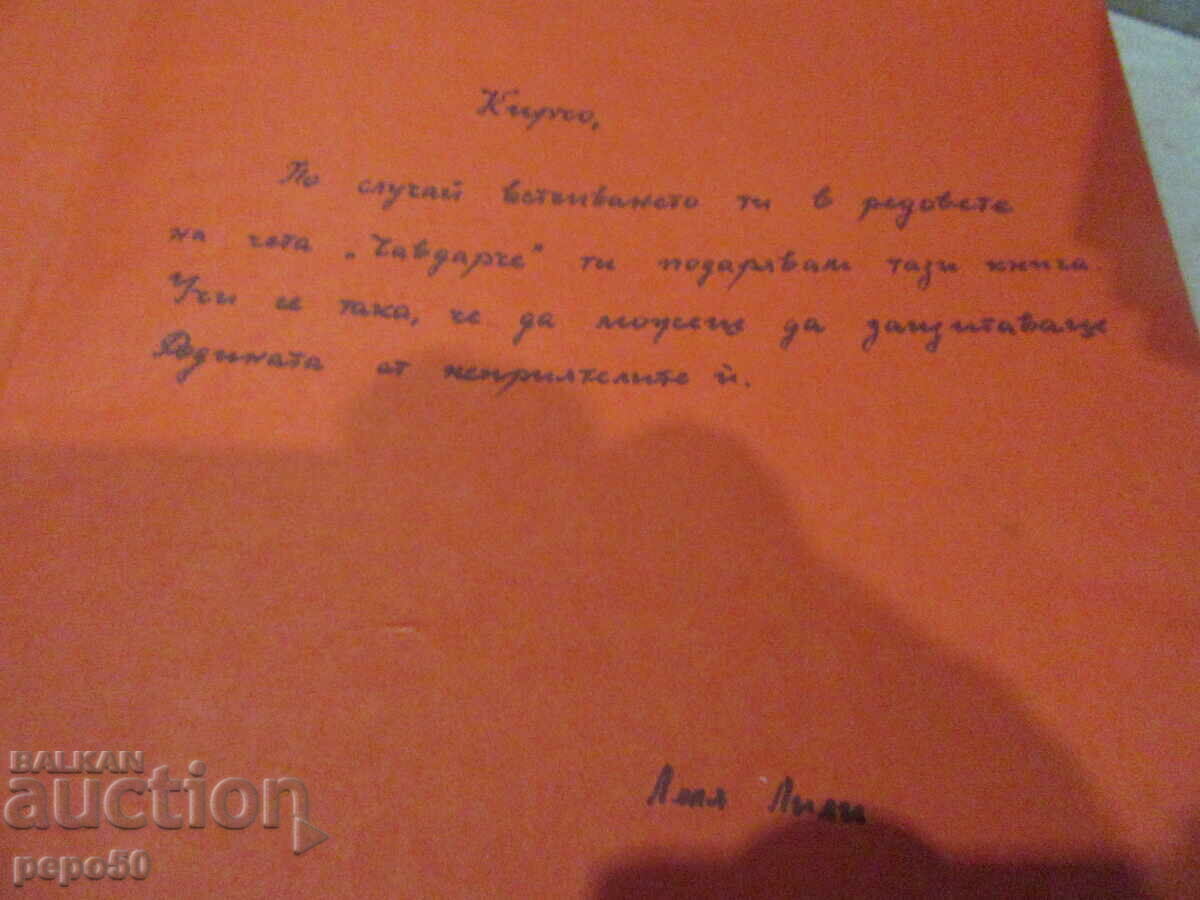 Кирчо,
По случай встъпването ти в редовете
на чета „Чавдарче" ти подарявам тази книга.
Учи се така, че да можеш да защитаваш
Родината от неприятелите ѝ.
Леля Лили
BALKAN
auction
pepo50